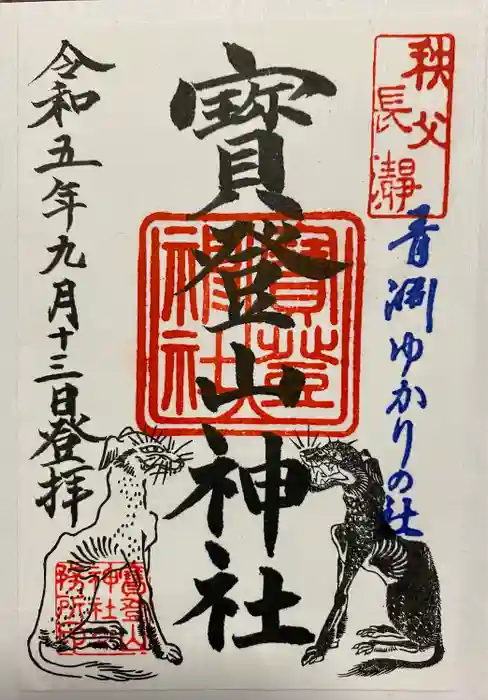 秩父
長瀞
青淵ゆかりの社
寶登山神社
寶登山
神社
令和五年九月十三日登拝
寶登山
神社
務所印